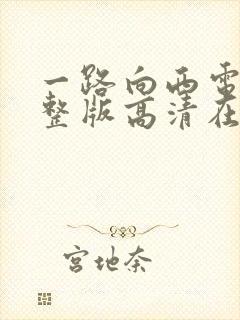 一路向西电
整版高清在
宫地奈